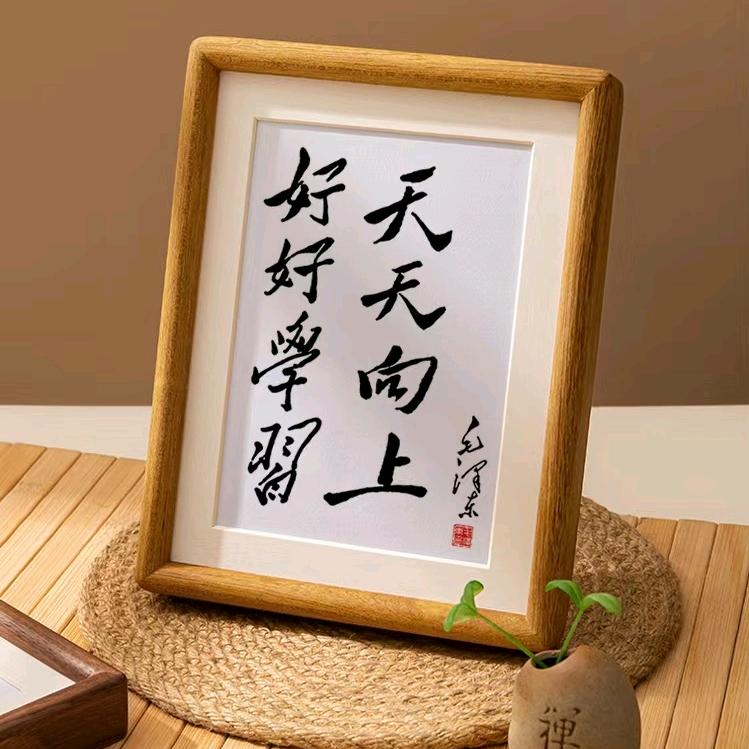 好好學習
天天向上
毛澤东
禅